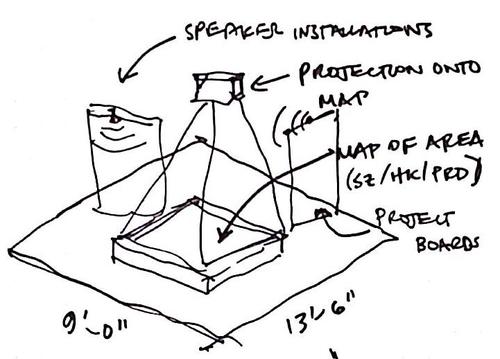 SPEAKER INSTALLATIONS
PROJECTION ONTO
MAP
MAP OF AREA
(SZ/HK/PRD)
PROJECT
BOARDS
9'-0"
13'-6"